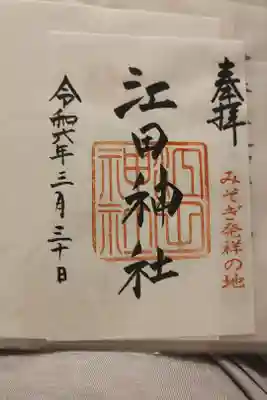 奉拝
みそぎ発祥の地
江田神社
江田神社
令和六年三月三十日